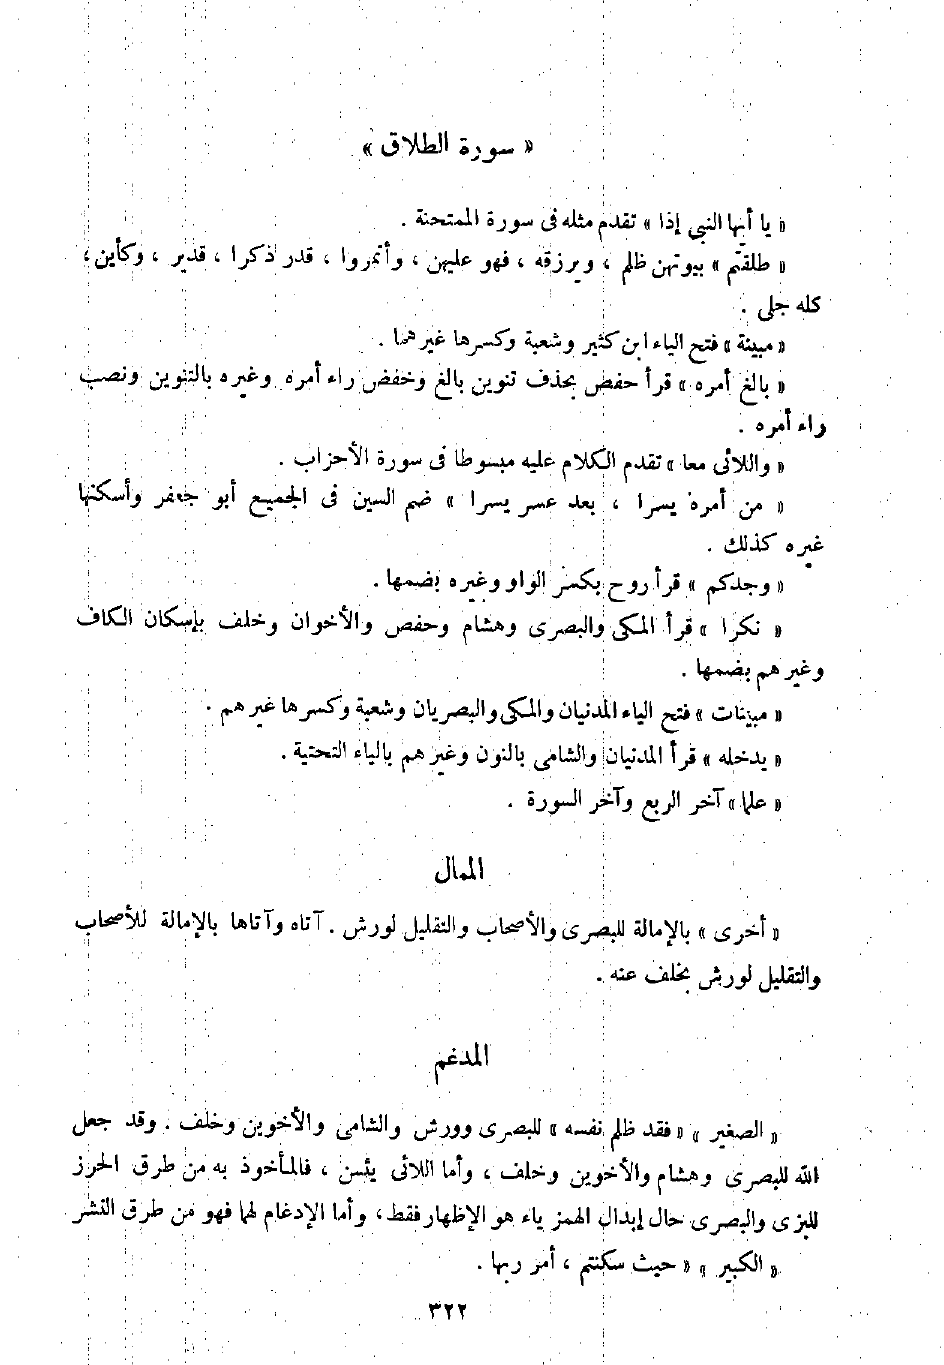 « سورة الطلاق »
« يا أيها النبي إذا » تقدم مثله فى سورة الممتحنة .
« طلقتم » بيوتهن ظلم ، ويرزقه ، فهو عليهن ، وأتمروا ، قدر ذكرا ، قدير ، وكأين ؛
كله جلى .
« مبينة » فتح الياء ابن كثير وشعبة وكسرها غيرهما .
« بالغ أمره » قرأ حفص بحذف تنوين بالغ وخفض راء أمره وغيره بالتنوين ونصب
راء أمره .
« واللائى معا » تقدم الكلام عليه مبسوطا فى سورة الأحزاب .
« من أمره يسرا ، بعد عسر يسرا » ضم السين فى الجميع أبو جعفر وأسكنها
غيره كذلك .
« وجدكم » قرأ روح بكسر الواو وغيره بضمها .
« نكرا » قرأ المكى والبصرى وهشام وحفص والأخوان وخلف بإسكان الكاف
وغيرهم بضمها .
« مبينات » فتح الياء المدنيان والمكى والبصريان وشعبة وكسرها غيرهم .
« يدخله » قرأ المدنيان والشامى بالنون وغيرهم بالياء التحتية .
« علما » آخر الربع وآخر السورة .
الممال
« أخرى » بالإمالة للبصرى والأصحاب والتقليل لورش . آتاه وآتاها بالإمالة للأصحاب
والتقليل لورش بخلف عنه .
المدغم
« الصغير » « فقد ظلم نفسه » للبصرى وورش والشامى والأخوين وخلف . وقد جعل
الله للبصرى وهشام والأخوين وخلف ، وأما اللائى يئسن ، فالمأخوذ به من طرق الحرز
للبزى والبصرى حال إبدال الهمز ياء هو الإظهار فقط ، وأما الإدغام لهما فهو من طرق النشر
« الكبير » « حيث سكنتم ، أمر ربها .
٣٢٢